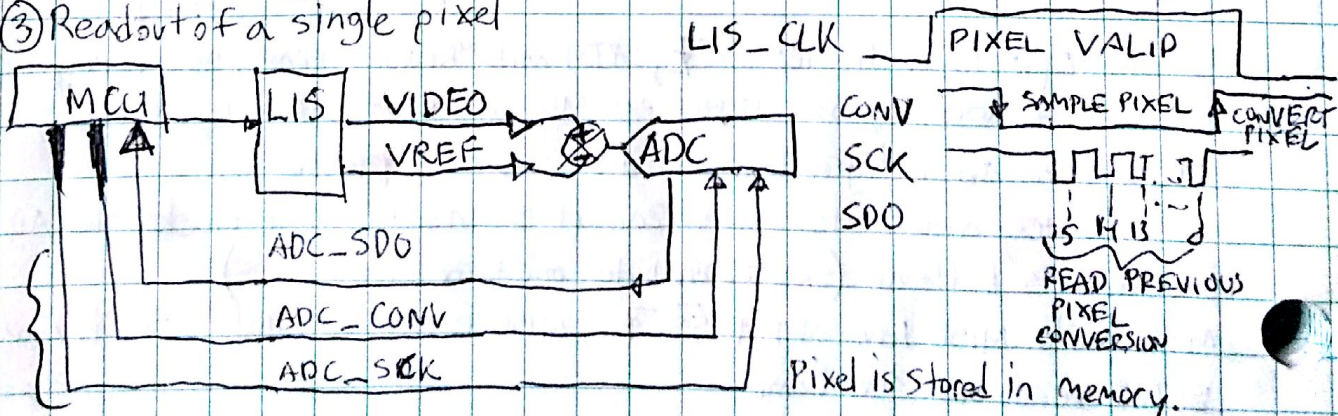 ③ Readout of a single pixel
MCU
LIS
VIDEO
VREF
ADC
ADC_SDO
ADC_CONV
ADC_SCK
LIS_CLK
PIXEL VALID
CONV
SAMPLE PIXEL
CONVERT
PIXEL
SCK
SDO
15 14 13 ... 0
READ PREVIOUS
PIXEL
CONVERSION
Pixel is stored in memory.